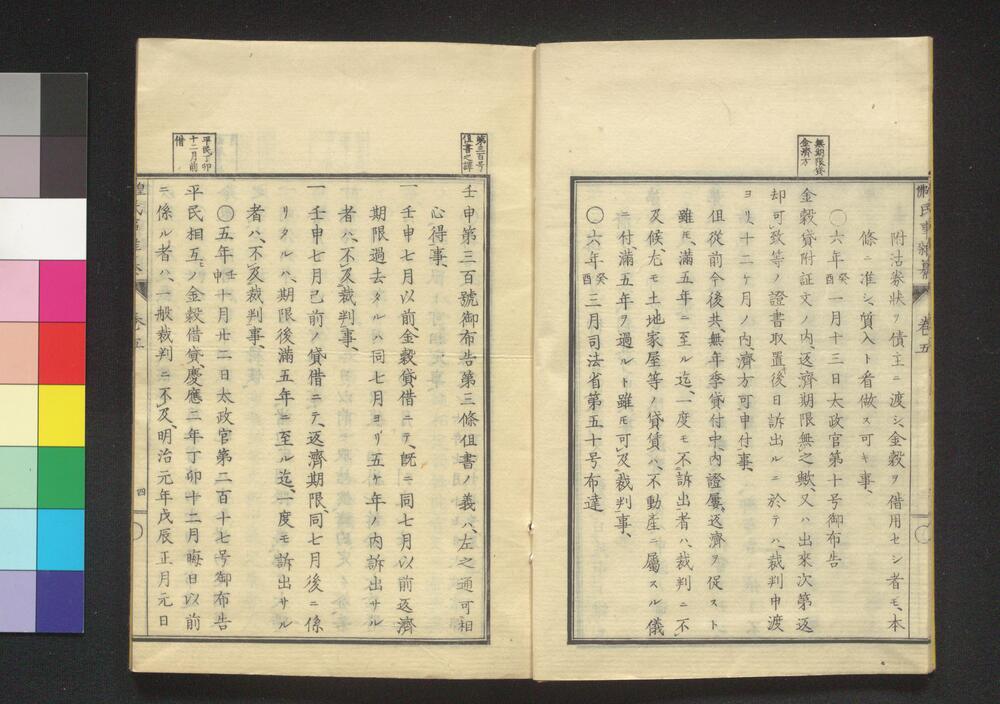 無期限貸
金済方
附沽券状ヲ債主ニ渡シ、金穀ヲ借用セシ者モ、本
條ニ准シ、質入ト看做ス可キ事、
○六年癸酉一月十三日太政官第十号御布告
金穀貸附証文ノ内、返濟期限無之歟、又ハ出来次第返
却可致等ノ證書取置、後日訴出ルニ於テハ、裁判申渡
ヨリ、十二ケ月ノ内濟方可申付事、
但従前今後共、無年季貸付中、内證屢返濟ヲ促スト
雖モ、滿五年ニ至ル迄、一度モ不訴出者ハ、裁判ニ不
及候、尤モ土地家屋等ノ貸賃ハ、不動産ニ屬スル儀
ニ付、滿五年ヲ過ルト雖モ可及裁判事、
○六年癸酉三月司法省第五十号布達
巻五
第三百号
但書之譯
壬申第三百號御布告第三條但書ノ義ハ、左之通可相
心得事、
一壬申七月以前金穀貸借ニテ、既ニ同七月以前返濟
期限過去タルハ同七月ヨリ五ケ年ノ内訴出サル
者ハ、不及裁判事、
一壬申七月已前ノ貸借ニテ、返濟期限、同七月後ニ係
リタルハ、期限後滿五年ニ至ル迄、一度モ訴出サル
者ハ、不及裁判事、
平民丁卯
十二月前
借
○五年壬申十月廿二日太政官第二百十七号御布告
平民相互ノ金穀借貸、慶應三年丁卯十二月晦日以前
ニ係ル者ハ、一般裁判ニ不及、明治元年戊辰正月元日
巻五
四